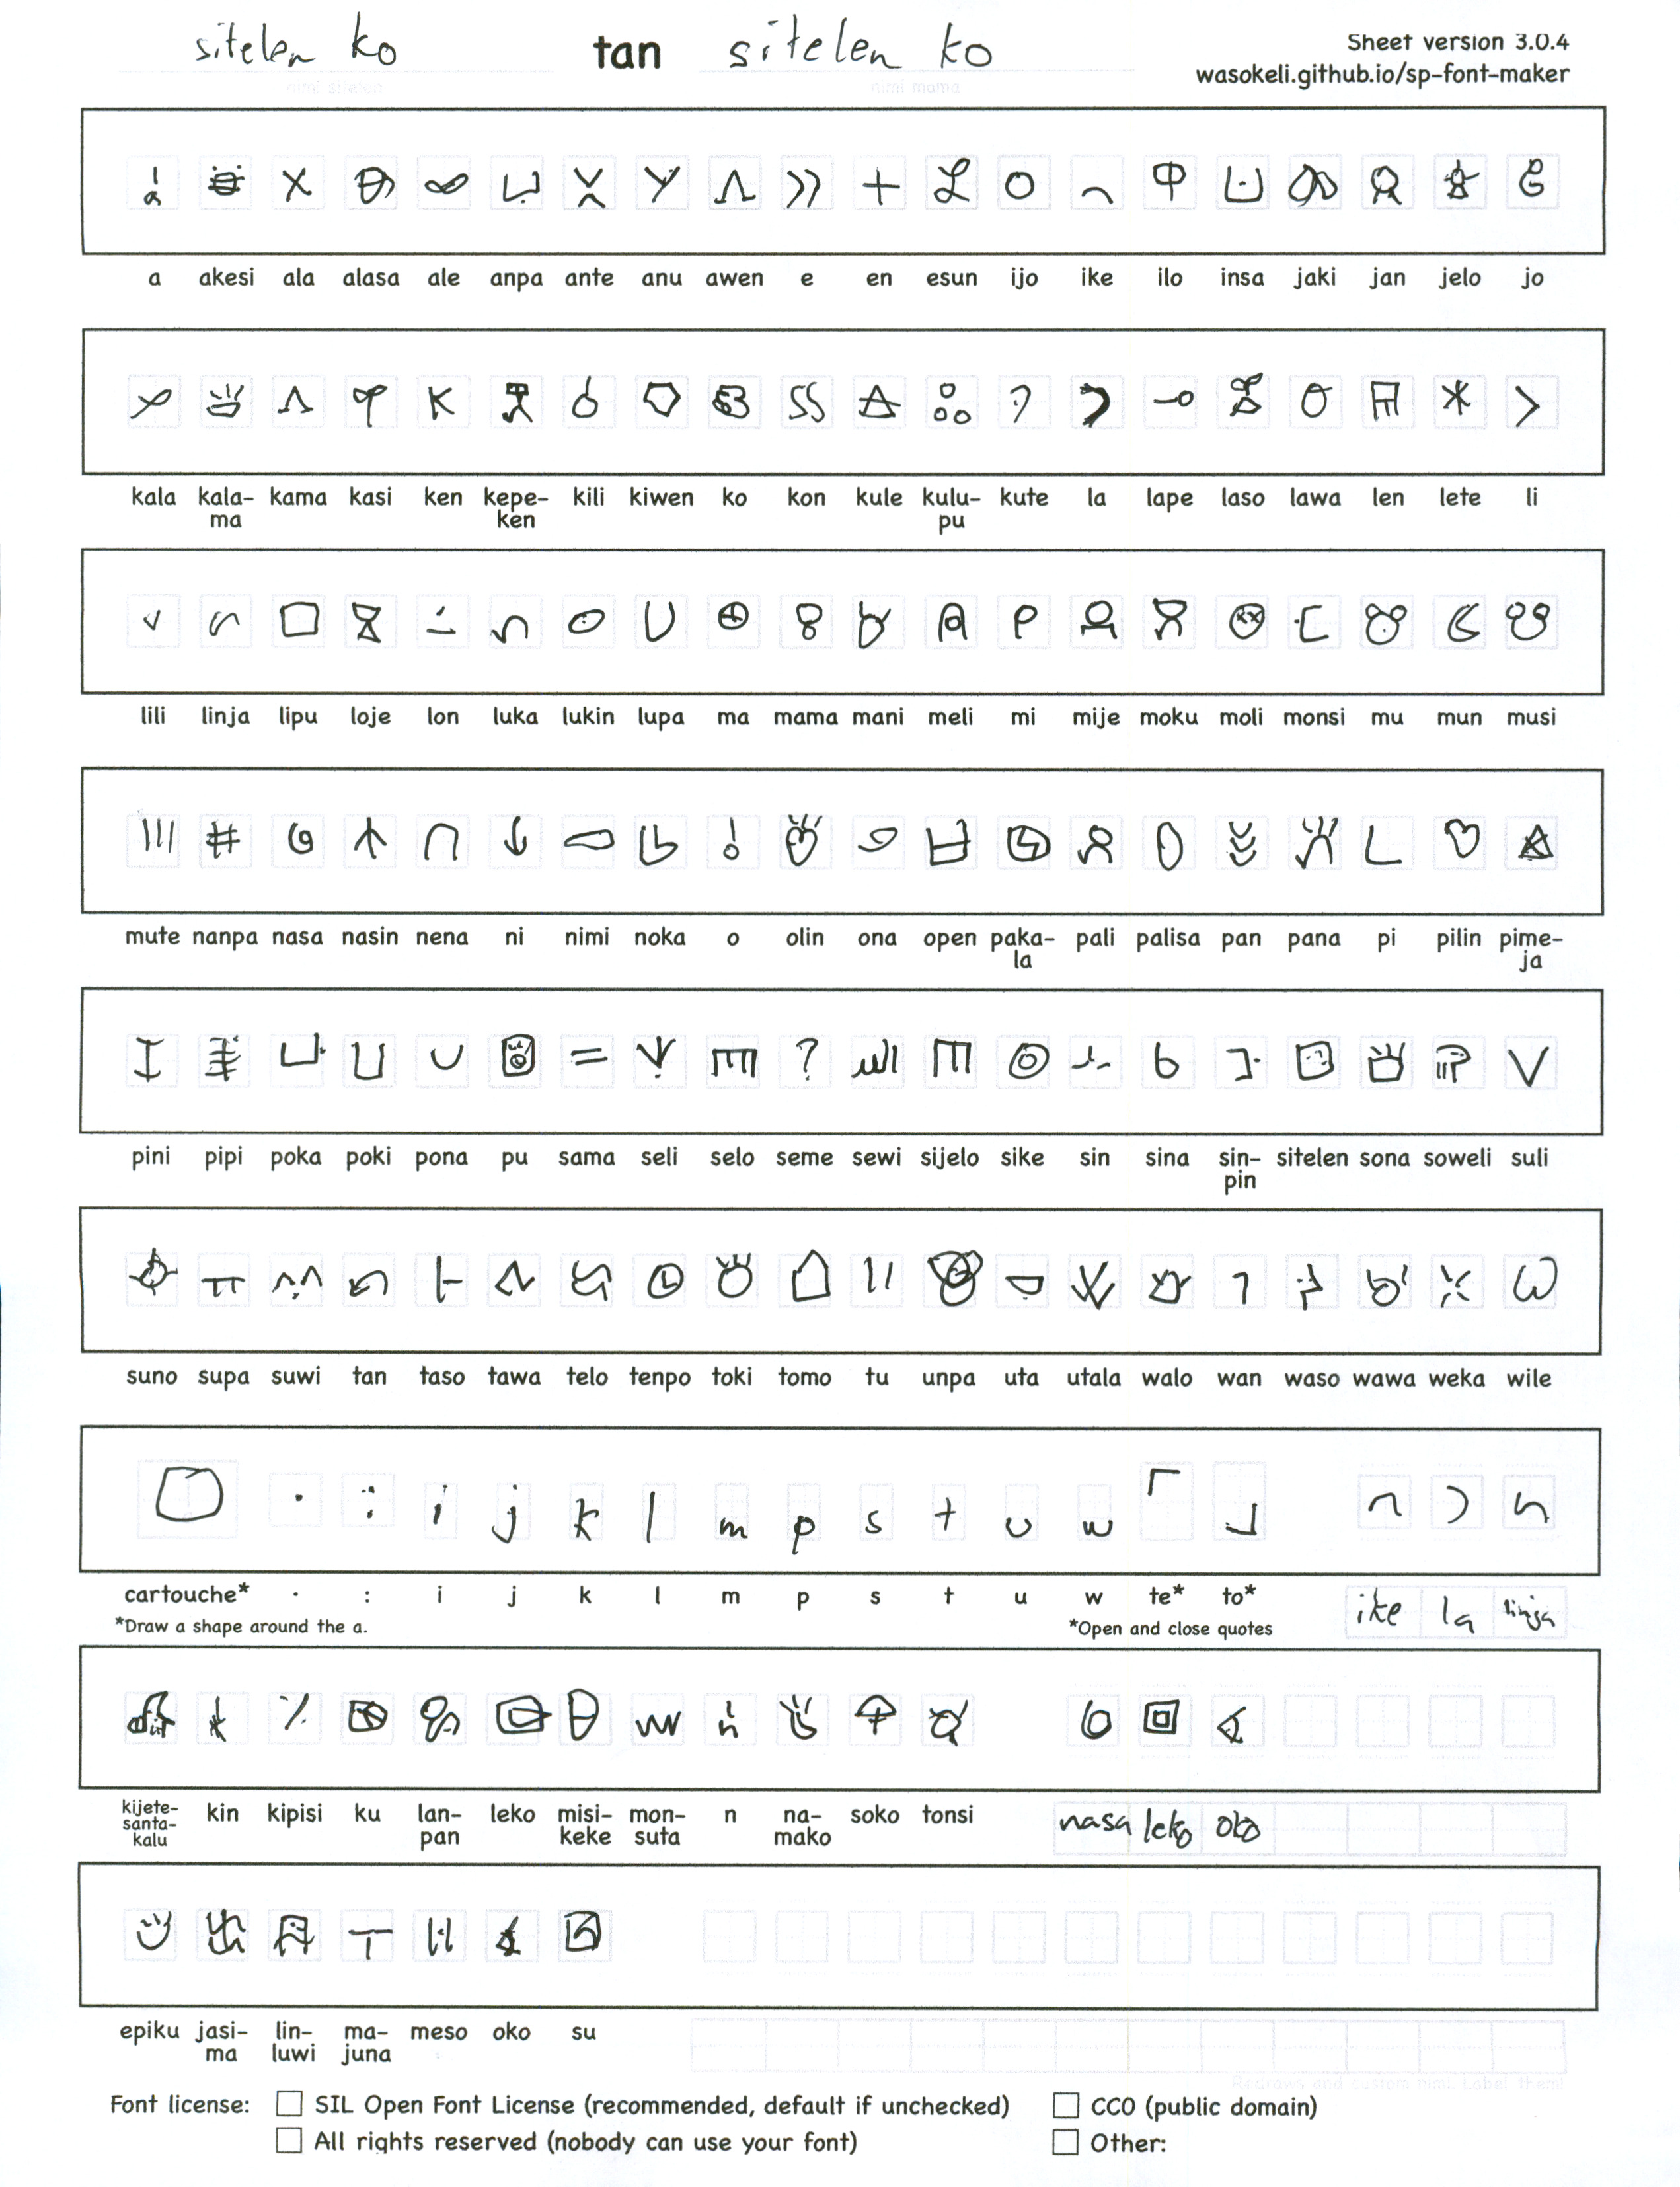 sitelen ko tan sitelen ko
Sheet version 3.0.4
wasokeli.github.io/sp-font-maker
nimi sitelen nimi mama
a akesi ala alasa ale anpa ante anu awen e en esun ijo ike ilo insa jaki jan jelo jo
kala kala-ma kama kasi ken kepe-ken kili kiwen ko kon kule kulu-pu kute la lape laso lawa len lete li
lili linja lipu loje lon luka lukin lupa ma mama mani meli mi mije moku moli monsi mu mun musi
mute nanpa nasa nasin nena ni nimi noka o olin ona open paka-la pali palisa pan pana pi pilin pime-ja
pini pipi poka poki pona pu sama seli selo seme sewi sijelo sike sin sina sin-pin sitelen sona soweli suli
suno supa suwi tan taso tawa telo tenpo toki tomo tu unpa uta utala walo wan waso wawa weka wile
· : i j k l m p s t u w
cartouche* · : i j k l m p s t u w te* to*
*Draw a shape around the a. *Open and close quotes
ike la linja
kijete-santa-kalu kin kipisi ku lan-pan leko misi-keke mon-suta n na-mako soko tonsi
nasa leko oko
epiku jasi-ma lin-luwi ma-juna meso oko su
Redraws and custom nimi. Label them!
Font license: SIL Open Font License (recommended, default if unchecked) CC0 (public domain)
All rights reserved (nobody can use your font) Other: